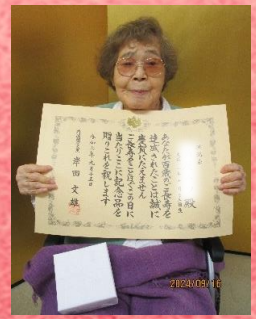 殿
あなたが百歳のご長寿を
達成されたことは誠に
慶賀にたえません
ご長寿をことほぐこの日に
当たりここに記念品を
贈りこれを祝します
内閣総理大臣 岸田文雄
2024/09/16